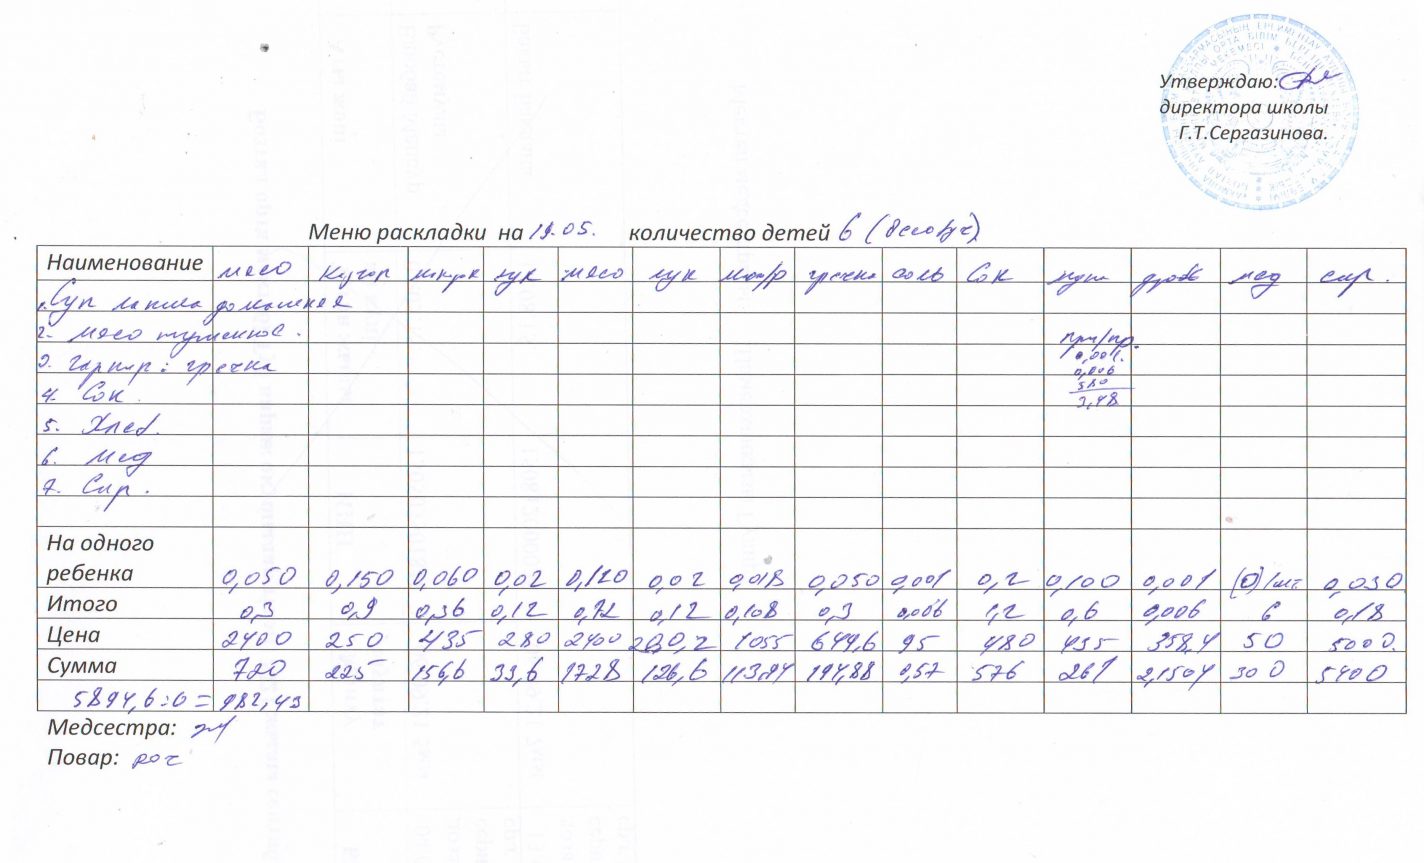 Утверждаю:
директора школы
Г.Т.Сергазинова.
Меню раскладки на 19.05. количество детей 6
Наименование мясо лук мясо лук гречка соль Сок мёд сыр.
1. Суп лапша домашняя
2. мясо тушеное.
3. гарнир: гречка
0,001.
0,006
580
3,48
4. Сок.
5. Хлеб.
6. Мёд
7. Сыр.
На одного
ребенка 0,050 0,150 0,060 0,02 0,120 0,02 0,018 0,050 0,001 0,2 0,100 0,001 0,030
Итого 0,3 0,9 0,36 0,12 0,72 0,12 0,108 0,3 0,006 1,2 0,6 0,006 6 0,18
Цена 2400 250 435 280 2400 1055 649,6 95 480 435 358,4 50 5000.
Сумма 720 225 156,6 33,6 1728 126,6 113,94 194,88 0,57 576 261 2,1504 300 5400
5894,6:6= 982,43
Медсестра:
Повар: